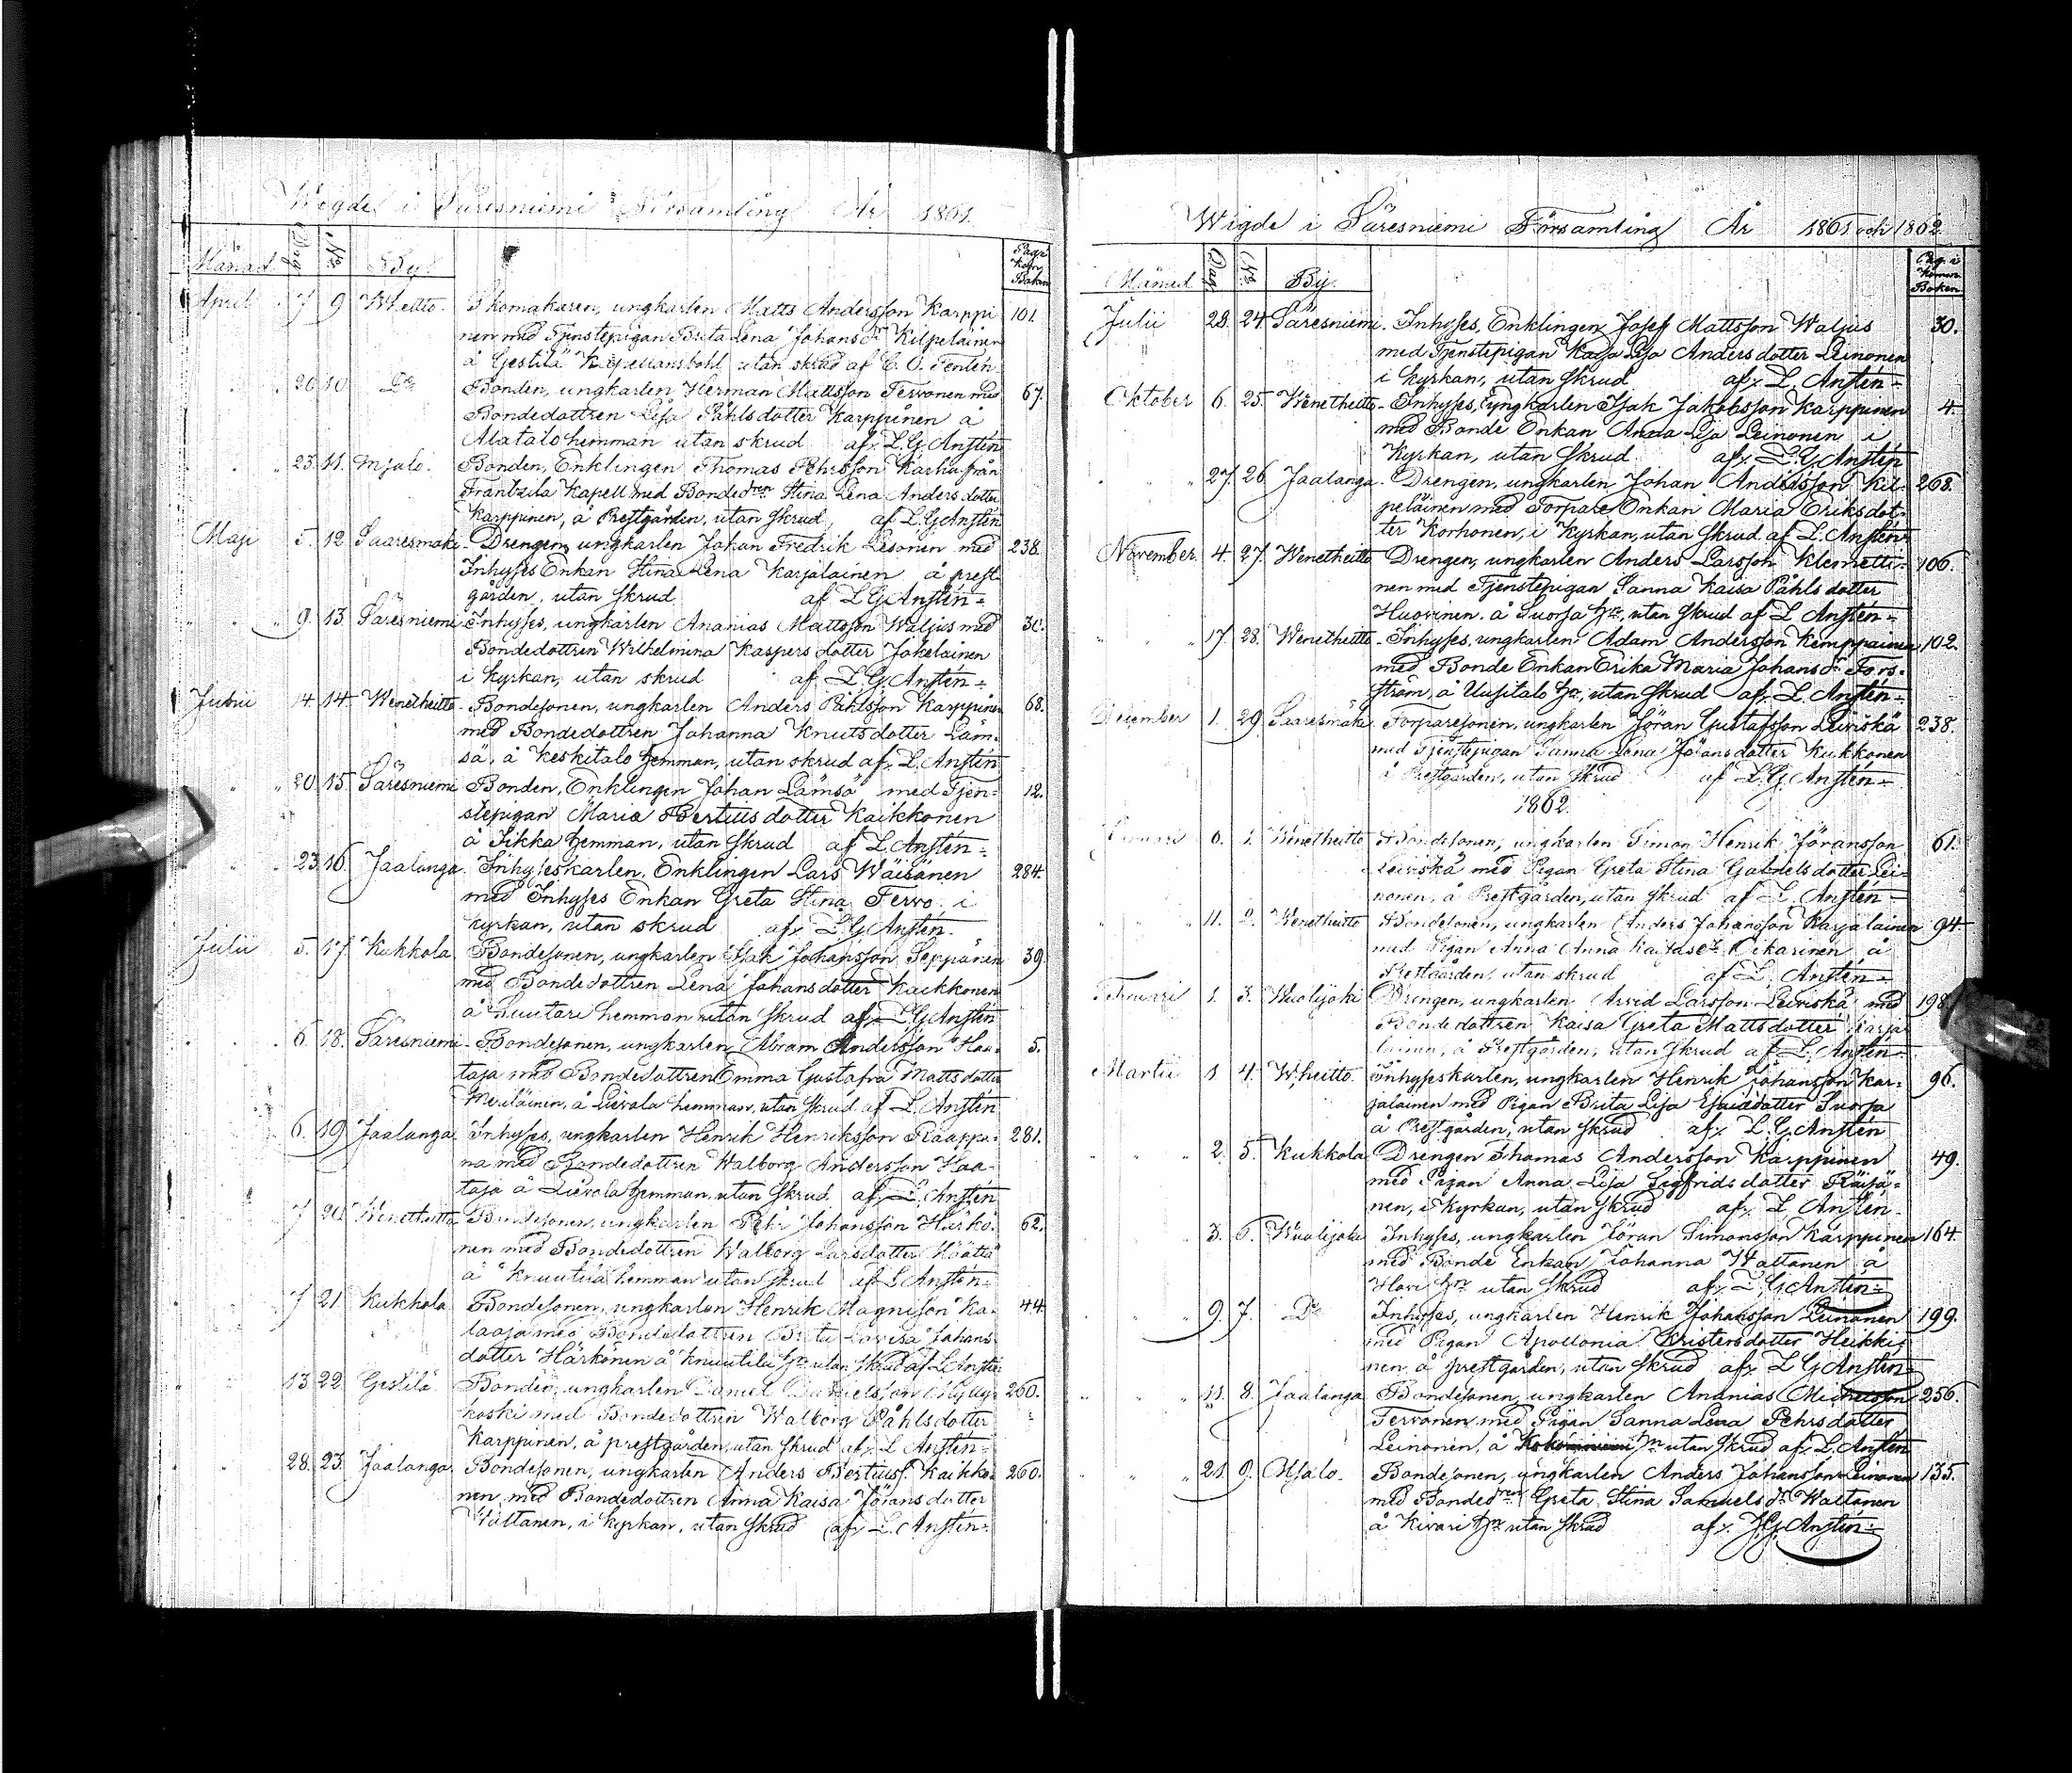 Wigde i Säresniemi Församling År 1861.
Månad Dag No By Pag. i Kom. Boken
April 7 9 W:heitto. Skomakaren, ungkarlen Matts Andersson Karppi 101.
nen med Tjenstepigan Brita Lena Johans dr Kilpeläinen
å Gestilä Kapellansbohl utan skrud af C. O. Fentén
" 20 10 Do Bonden, ungkarlen Herman Mattsson Tervonen med 67.
Bondedottren Lisa Påhlsdotter Karppinen å
Alatalo hemman utan skrud af L. G. Anstén
" 23. 11. Osjalo. Bonden, Enklingen Thomas Pehrsson Karhu från
Frantzila Kapell med Bonded:ren Stina Lena Anders dotter
Karppinen, å Prestgården, utan skrud, af L. G. Anstén
Maji 5. 12 Saaresmäki Drengen, ungkarlen Johan Fredrik Lesonen med 238.
Inhyses Enkan Stina Lena Karjalainen å prest
gården, utan skrud af L. G. Anstén
" 9. 13. Säresniemi Inhyses, ungkarlen Ananias Mattsson Waljus med 30.
Bondedottren Wilhelmina Kaspers dotter Jakelainen
i kyrkan, utan skrud af L. G. Anstén
Junii 14. 14. Wenetheitto Bondesonen, ungkarlen Anders Påhlsson Karppinen 68.
med Bondedottren Johanna Knutsdotter Läm-
sä, å Keskitalo hemman, utan skrud af L. Anstén
" 20. 15. Säresniemi Bonden, Enklingen Johan Lämsä med Tjen- 12.
stepigan Maria Bertilsdotter Kaikkonen
å Sikka hemman, utan skrud af L. Anstén
" 23. 16. Jaalanga. Inhyseskarlen, Enklingen Lars Wäisänen 284.
med Inhyses Enkan Greta Stina Tervo i
kyrkan, utan skrud af L. G. Anstén
Julii 5. 17. Kukkola Bondesonen, ungkarlen Isak Johansson Seppänen 39
med Bondedottren Lena Johansdotter Kaikkonen
å Luutari hemman utan skrud af L. G. Anstén
" 6. 18. Säresniemi Bondesonen, ungkarlen Abram Andersson Haa- 5.
taja med Bondedottren Emma Gustafva Matts dotter
Meriläinen, å Lievola hemman, utan skrud af L. Anstén
6. 19. Jaalanga Inhyses, ungkarlen Henrik Henriksson Raappa- 281.
na med Bondedottren Walborg Andersson Haa-
taja å Lievola hemman, utan skrud af L. Anstén
7 20 Wenetheitto Bondesonen, ungkarlen Pehr Johansson Härkö- 62.
nen med Bondedottren Walborg Larsdotter Määttä
å Knuutila hemman utan skrud af L. Anstén
7 21. Kukkola Bondesonen, ungkarlen Henrik Magnisson Ka- 44
laaja med Bondedottren Brita Lovisa Johans
dotter Härkönen å Knuutila hn utan skrud af L. Anstén
13. 22. Gestilä. Bonden, ungkarlen Daniel Danielsson Mylly- 260.
koski med Bondedottren Walborg Påhlsdotter
Karppinen, å prestgården, utan skrud af L. Anstén
28. 23. Jaalanga. Bondesonen, ungkarlen Anders Bertilss. Kaikko- 260.
nen, med Bondedottren Anna Kaisa Jöransdotter
Wattanen, i kyrkan, utan skrud af L. Anstén
Wigde i Säresniemi Församling År 1861 och 1862
Månad Dag No By. Pag. i Komm. Boken
Julii 28. 24. Säresniemi. Inhyses, Enklingen Josef Mattsson Waljus 30.
med Tjenstepigan Kaisa Lisa Andersdotter Leinonen
i kyrkan, utan skrud af L. Anstén
Oktober 6. 25. Wenetheitto Inhyses, ungkarlen Isak Jakobsson Karppinen 4.
med Bonde Enkan Anna Lisa Leinonen i
Kyrkan, utan skrud af L. G. Anstén
" 27. 26 Jaalanga Drengen, ungkarlen Johan Andersson Kil- 268.
peläinen med Torpare Enkan Maria Eriksdot-
ter Korhonen, i kyrkan, utan skrud af L. Anstén
November. 4. 27. Wenetheitto Drengen, ungkarlen Anders Larsson Klemetti- 106.
nen med Tjenstepigan Sanna Kaisa Påhlsdotter
Huovinen. å Suorsa hn, utan skrud af L. Anstén
" 17. 28. Wenetheitto Inhyses, ungkarlen Adam Andersson Kemppainen 102.
med Bonde Enkan Erika Maria Johans dr Fors-
ström, å Uusitalo hn, utan skrud af L. Anstén
December 1. 29. Saaresmäki Torparesonen, ungkarlen Jöran Gustafsson Leiviskä 238.
med Tjenstepigan Sanna Lena Jöransdotter Kukkonen
å Prestgården, utan skrud af L. G. Anstén
1862
Januari 6. 1. Wenetheitto Bondesonen, ungkarlen Simon Henrik Jöransson 61.
Leiviskä med Pigan Greta Stina Gabrielsdotter Lei-
nonen, å Prestgården, utan skrud af L. Anstén
" 11. 2. Wenetheitto Bondesonen, ungkarlen Anders Johansson Karjalainen 94.
med Pigan Anna Anna Kaisa Pikarinen å
Prestgården, utan skrud af L. Anstén
Februari 1. 3. Wuolijoki Drengen, ungkarlen Arvid Larsson Leiviskä med 198.
Bondedottren Kaisa Greta Mattsdotter Karja-
lainen, å Prestgården, utan skrud af L. Anstén
Martii 1 4. W:heitto. Inhyseskarlen, ungkarlen Henrik Johansson Kar- 96.
jalainen med Pigan Brita Lisa Esaiædotter Suorsa
å Prestgården, utan skrud af L. G. Anstén
" 2. 5. Kukkola Drengen Thomas Andersson Karppinen 49.
med Pigan Anna Lisa Sigfridsdotter Räisä-
nen, i Kyrkan, utan skrud af L. Anstén
3. 6. Wuolijoki Inhyses, ungkarlen Jöran Simonsson Karppinen 164.
med Bonde Enkan Johanna Wattanen å
Hori hn utan skrud af L. G. Anstén
" 9. 7. Do Inhyses, ungkarlen Henrik Johansson Leinonen 199.
med Pigan Apollonia Kristersdotter Heikki-
nen å prestgården, utan skrud af L. G. Anstén
" 11. 8. Jaalanga Bondesonen, ungkarlen Ananias Michelsson 256.
Tervonen med Pigan Sanna Lena Pehrsdotter
Leinonen, å hn utan skrud af L. Anstén
" 21. 9. Osjalo. Bondesonen, ungkarlen Anders Johansson Leinonen 135.
med Bonded:ren Greta Stina Samuels dr Wattanen
å Kivari hn utan skrud af L. G. Anstén